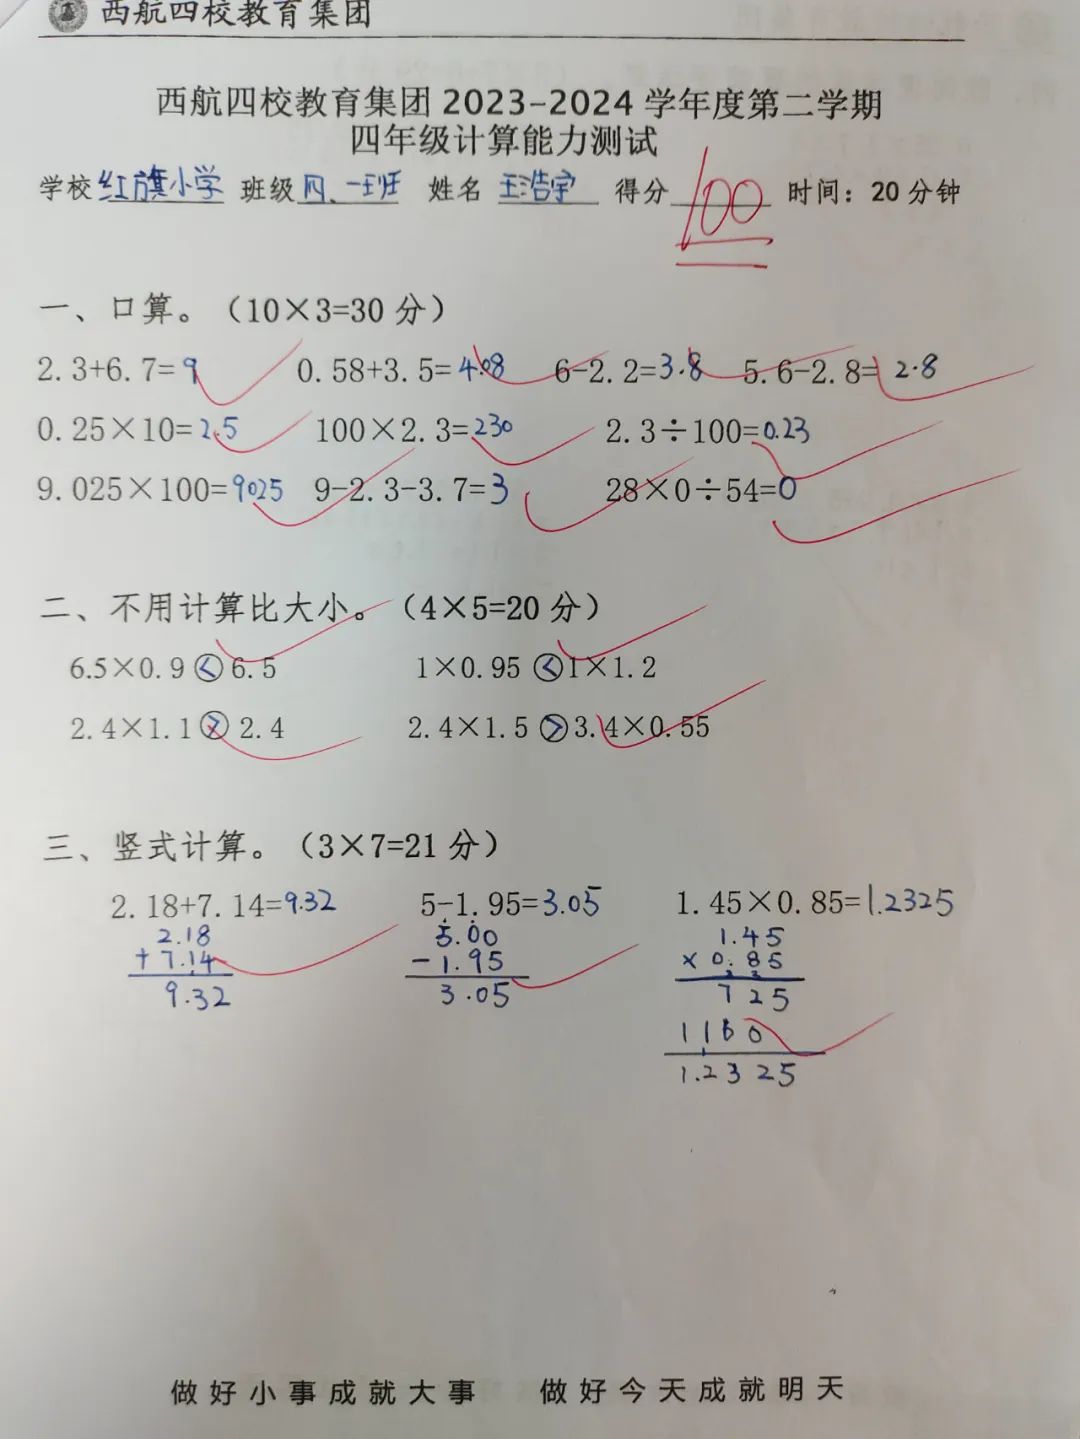 西航四校教育集团
西航四校教育集团 2023-2024 学年度第二学期
四年级计算能力测试
学校 红旗小学 班级 四、一班 姓名 王浩宇 得分 100 时间：20 分钟
一、口算。（10×3=30 分）
2.3+6.7=9 0.58+3.5=4.08 6-2.2=3.8 5.6-2.8=2.8
0.25×10=2.5 100×2.3=230 2.3÷100=0.23
9.025×100=9025 9-2.3-3.7=3 28×0÷54=0
二、不用计算比大小。（4×5=20 分）
6.5×0.9 < 6.5 1×0.95 < 1×1.2
2.4×1.1 > 2.4 2.4×1.5 > 3.4×0.55
三、竖式计算。（3×7=21 分）
2.18+7.14=9.32 5-1.95=3.05 1.45×0.85=1.2325
2.18 5.00 1.45
+7.14 -1.95 ×0.85
9.32 3.05 725
1160
1.2325
做好小事成就大事 做好今天成就明天